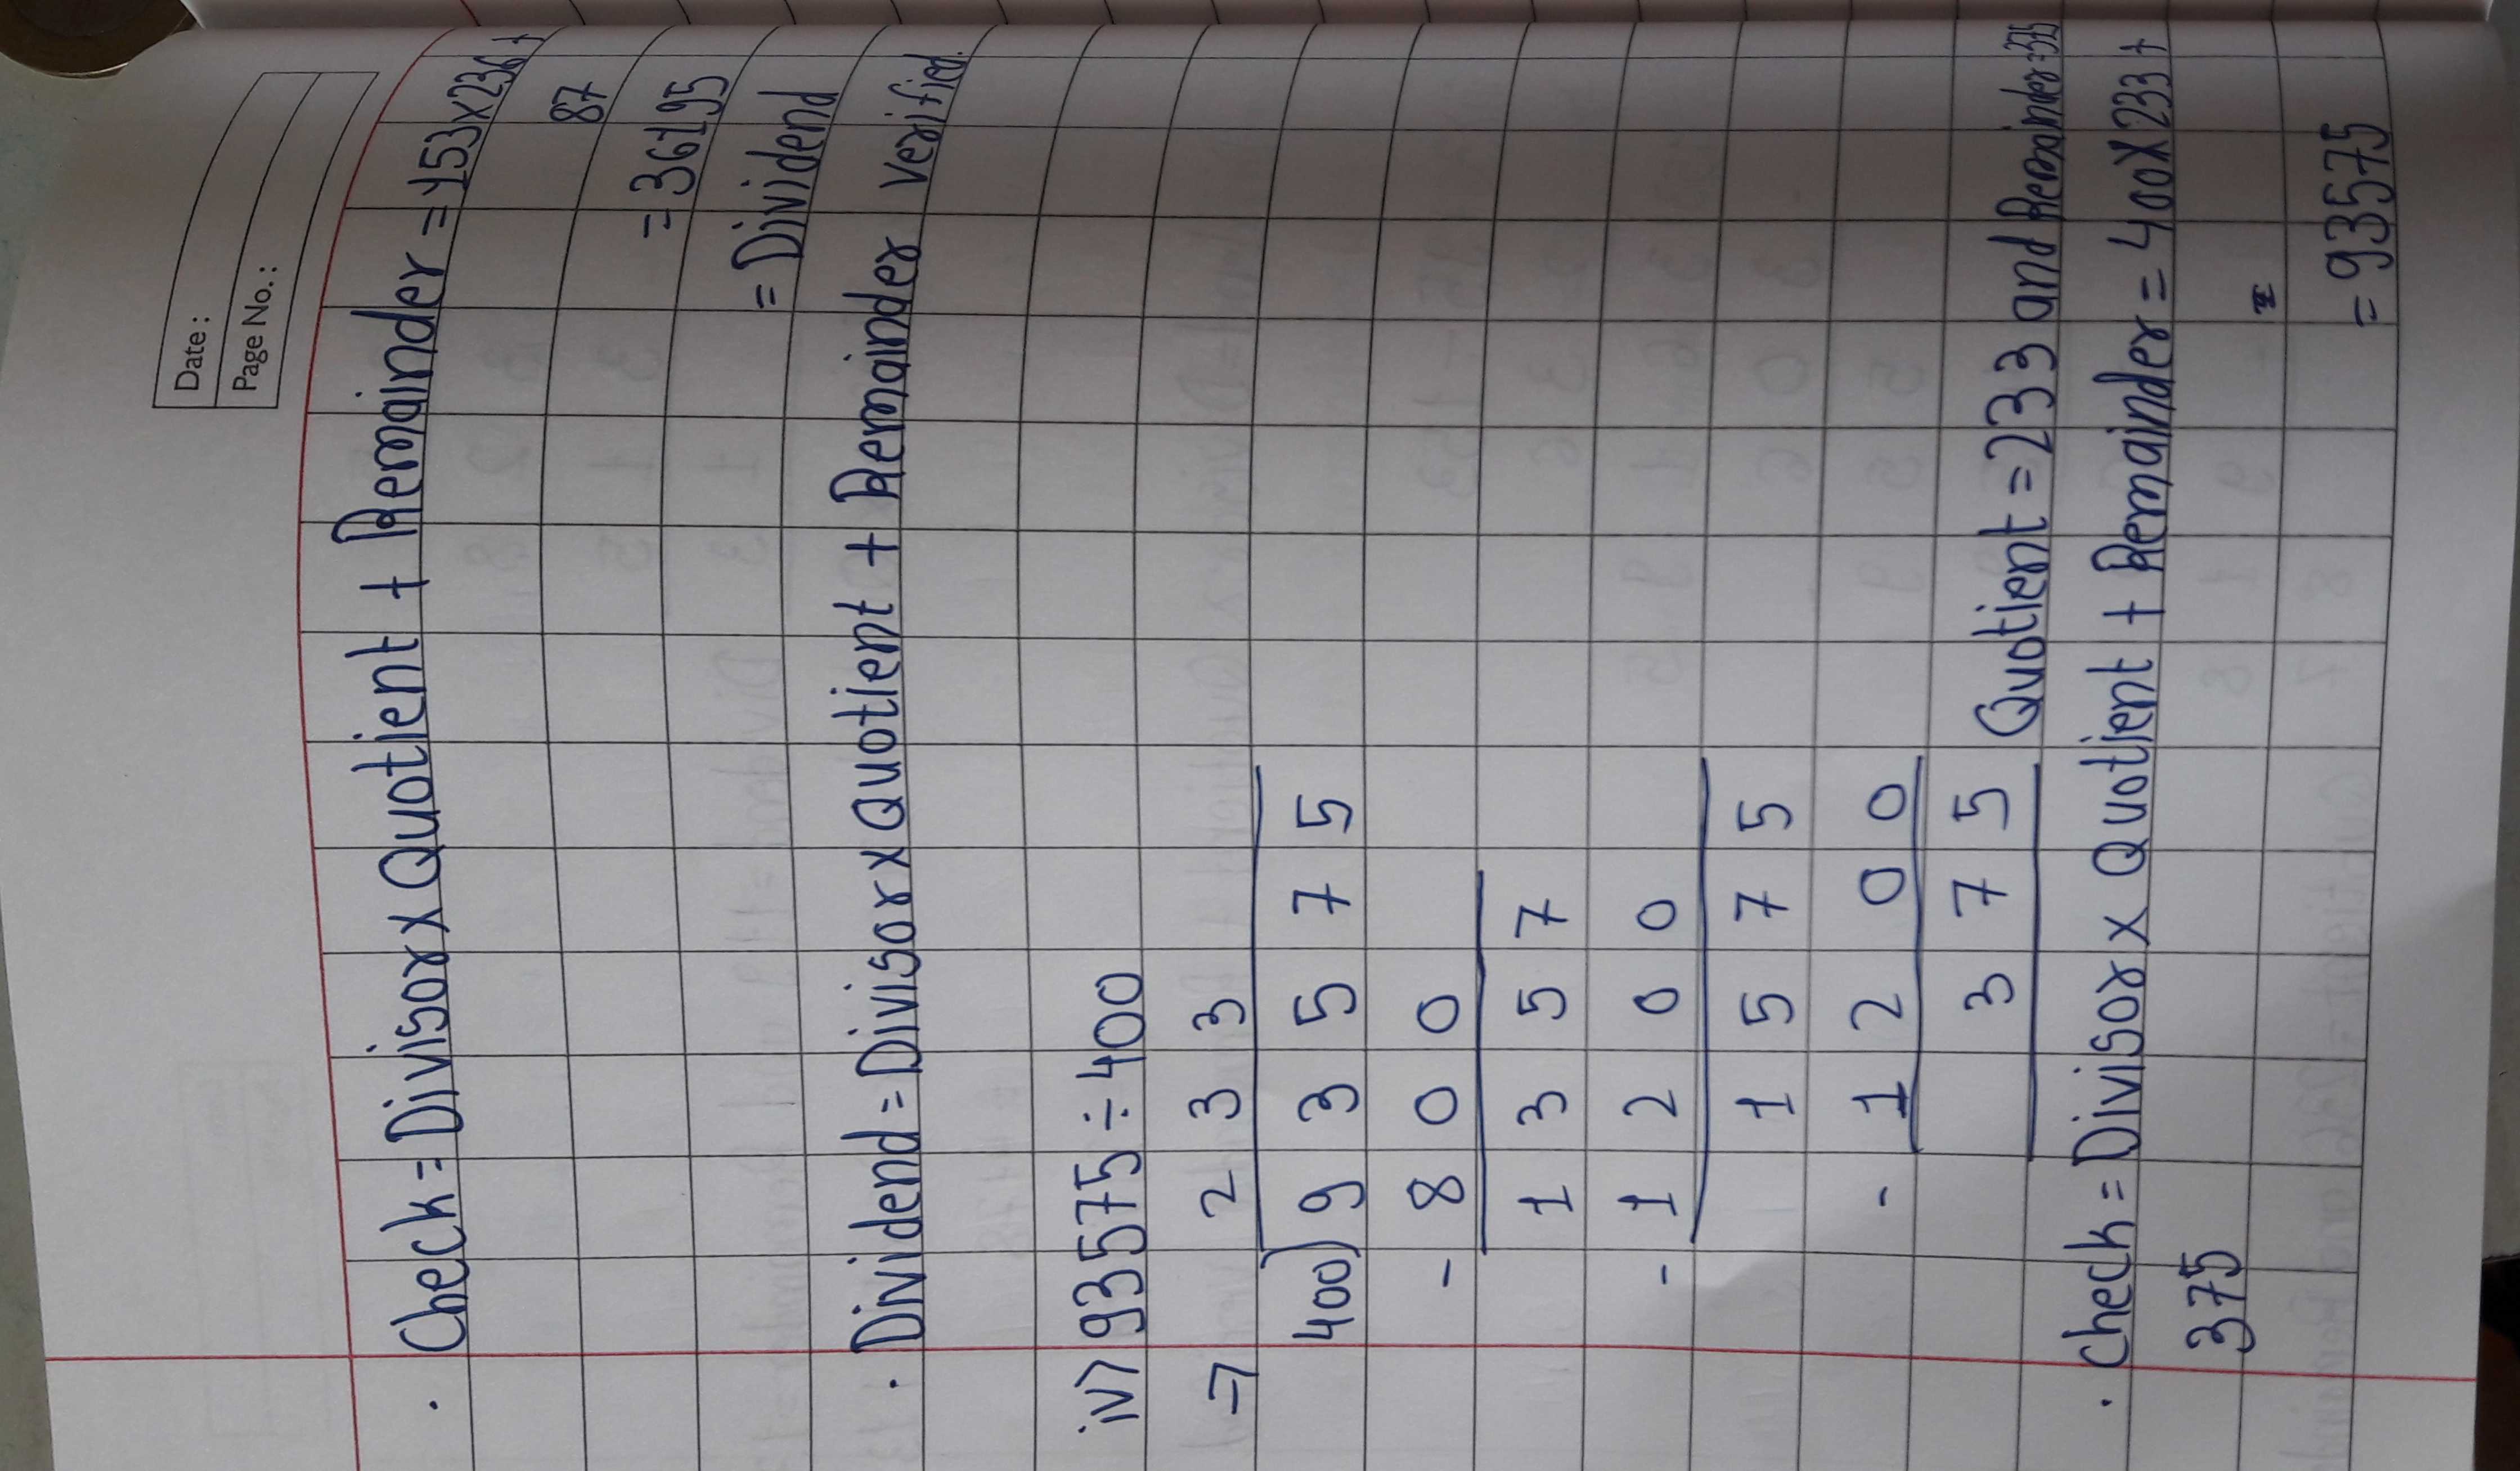 Date :
Page No. :
. Check = Divisor x Quotient + Remainder = 153 x 236 +
87
= 36195
= Dividend
. Dividend = Divisor x Quotient + Remainder verified.
iv) 93575 ÷ 400
→ 2 3 3
400) 9 3 5 7 5
- 8 0 0
1 3 5 7
- 1 2 0 0
1 5 7 5
- 1 2 0 0
3 7 5 Quotient = 233 and Remainder = 375
. Check = Divisor x Quotient + Remainder = 400 x 233 +
375
= 93575